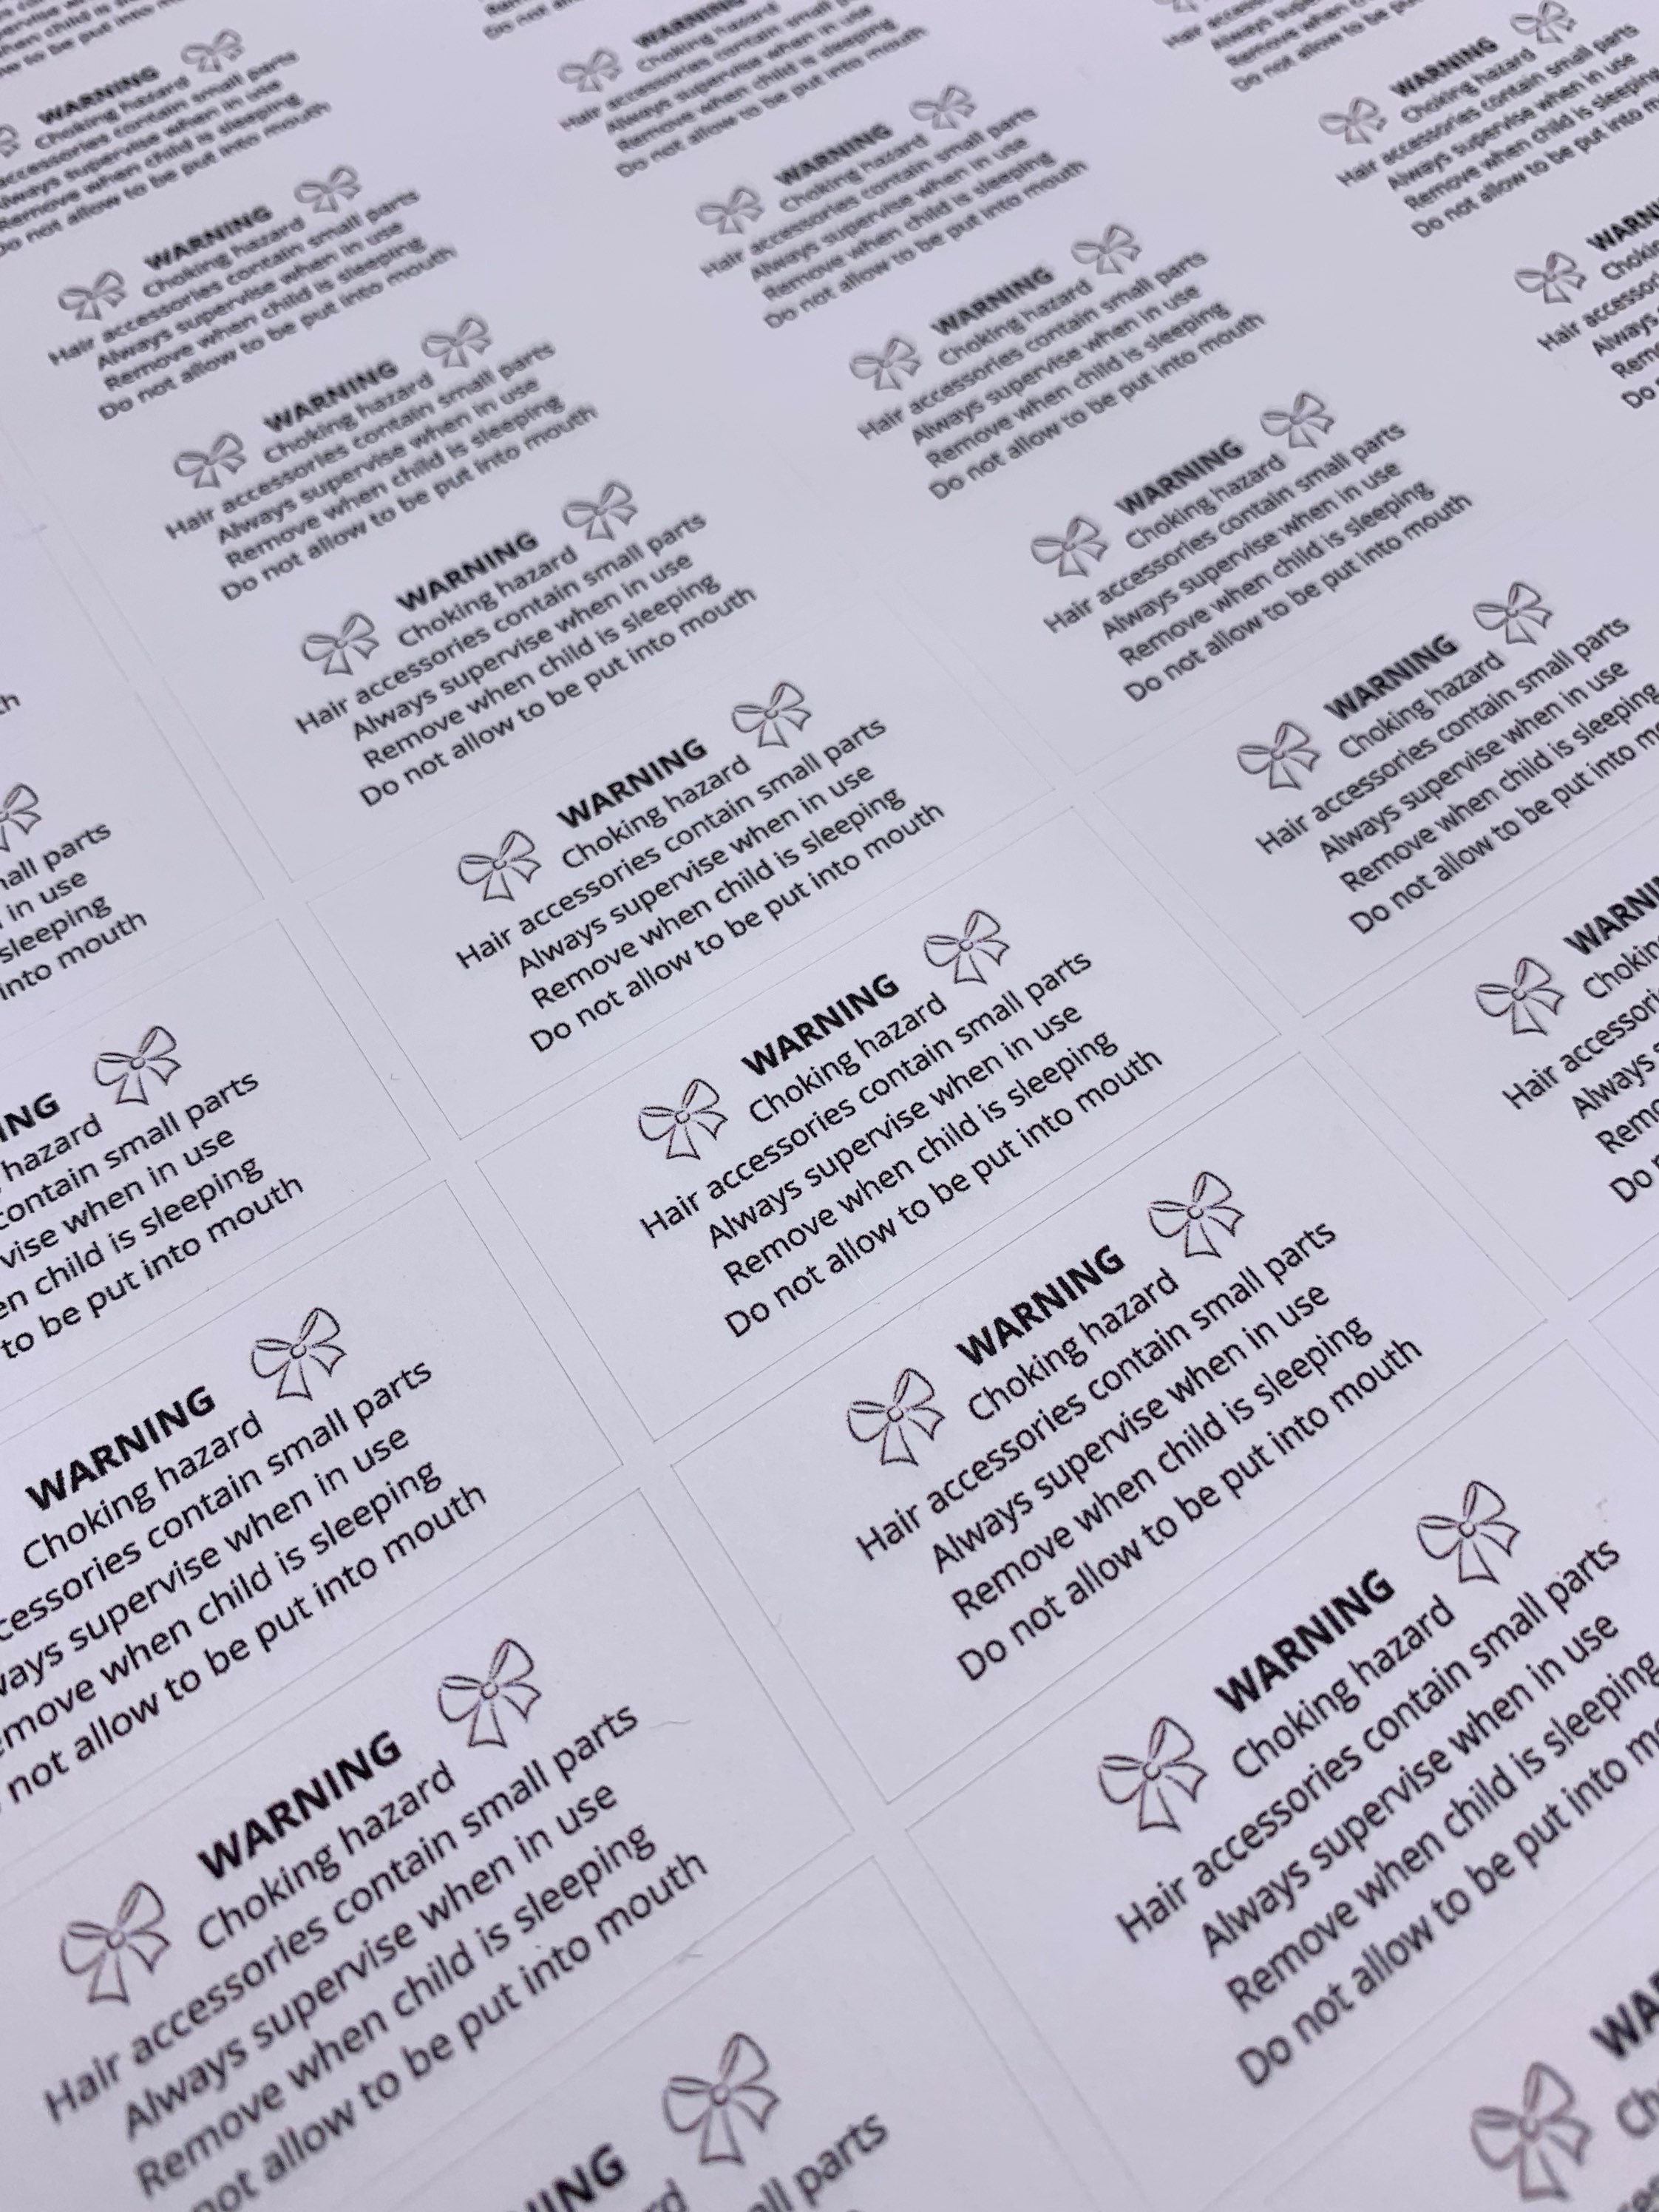 WARNING
Choking hazard
accessories contain small parts
Always supervise when in use
Remove when child is sleeping
Do not allow to be put into mouth
WARNING
Choking hazard
Hair accessories contain small parts
Always supervise when in use
Remove when child is sleeping
Do not allow to be put into mouth
WARNING
Choking hazard
Hair accessories contain small parts
Always supervise when in use
Remove when child is sleeping
Do not allow to be put into mouth
WARNING
Choking hazard
Hair accessories contain small parts
Always supervise when in use
Remove when child is sleeping
Do not allow to be put into mouth
WARNING
Choking hazard
Hair accessories contain small parts
Always supervise when in use
Remove when child is sleeping
Do not allow to be put into mouth
WARNING
Choking hazard
Hair accessories contain small parts
Always supervise when in use
Remove when child is sleeping
Do not allow to be put into mouth
WARNING
Choking hazard
Hair accessories contain small parts
Always supervise when in use
Remove when child is sleeping
Do not allow to be put into mouth
WARNING
Choking hazard
Hair accessories contain small parts
Always supervise when in use
Remove when child is sleeping
Do not allow to be put into
WARNING
Choking hazard
Hair accessories contain small parts
Always supervise when in use
Remove when child is sleeping
Do not allow to be put into mouth
WARNING
Choking hazard
Hair accessories contain small parts
Always supervise when in use
Remove when child is sleeping
Do not allow to be put into mouth
WARNING
Choking hazard
Hair accessories contain small parts
Always supervise when in use
Remove when child is sleeping
Do not allow to be put into mouth
WARNING
Choking hazard
Hair accessories contain small parts
Always supervise when in use
Remove when child is sleeping
Do not allow to be put into mouth
WARNING
Choking hazard
Hair accessories contain small parts
Always supervise when in use
Remove when child is sleeping
Do not allow to be put into
WARNING
Choking hazard
Hair accessories contain small parts
Always supervise when in use
Remove when child is sleeping
Do not allow to be put into
parts
in use
sleeping
into mouth
hazard
contain small parts
when in use
child is sleeping
to be put into mouth
WARNING
Choking hazard
contain small parts
supervise when in use
when child is sleeping
not allow to be put into mouth
WARNING
Choking hazard
Hair accessories contain small parts
Always supervise when in use
Remove when child is sleeping
not allow to be put into mouth
parts